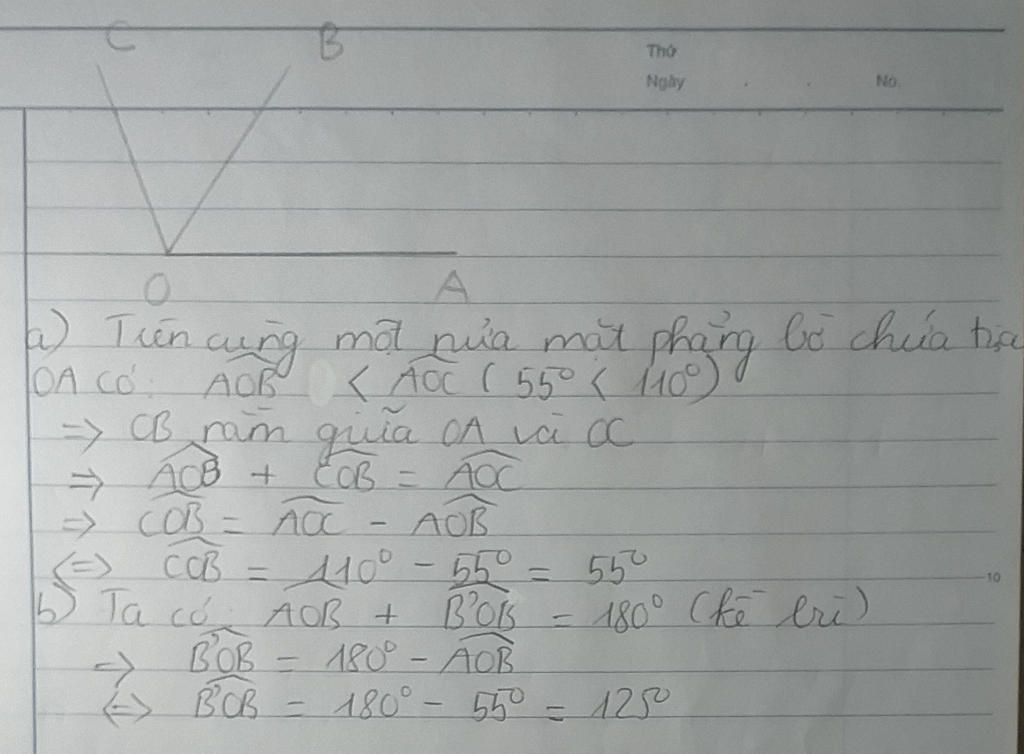 C B
Thứ
Ngày . . No.
O A
a) Trên cùng một nửa mặt phẳng bờ chứa tia
OA có: AOB < AOC (55° < 110°)
=> OB nằm giữa OA và OC
=> AOB + COB = AOC
=> COB = AOC - AOB
<=> COB = 110° - 55° = 55°
10
b) Ta có: AOB + B'OB = 180° (kề bù)
=> B'OB = 180° - AOB
<=> B'OB = 180° - 55° = 125°